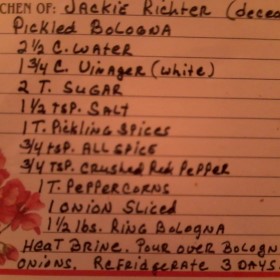 CHEN OF: Jackie Richter (decea
Pickled Bologna
2 1/2 C. Water
1 3/4 C. Vinager (white)
2 T. Sugar
1 1/2 tsp. Salt
1 T. Pickling Spices
3/4 tsp. All Spice
3/4 tsp. Crushed Red Pepper
1 T. Peppercorns
1 Onion Sliced
1 1/2 lbs. Ring Bologna
Heat Brine. Pour over Bologn
Onions. Refridgerate 3 Days